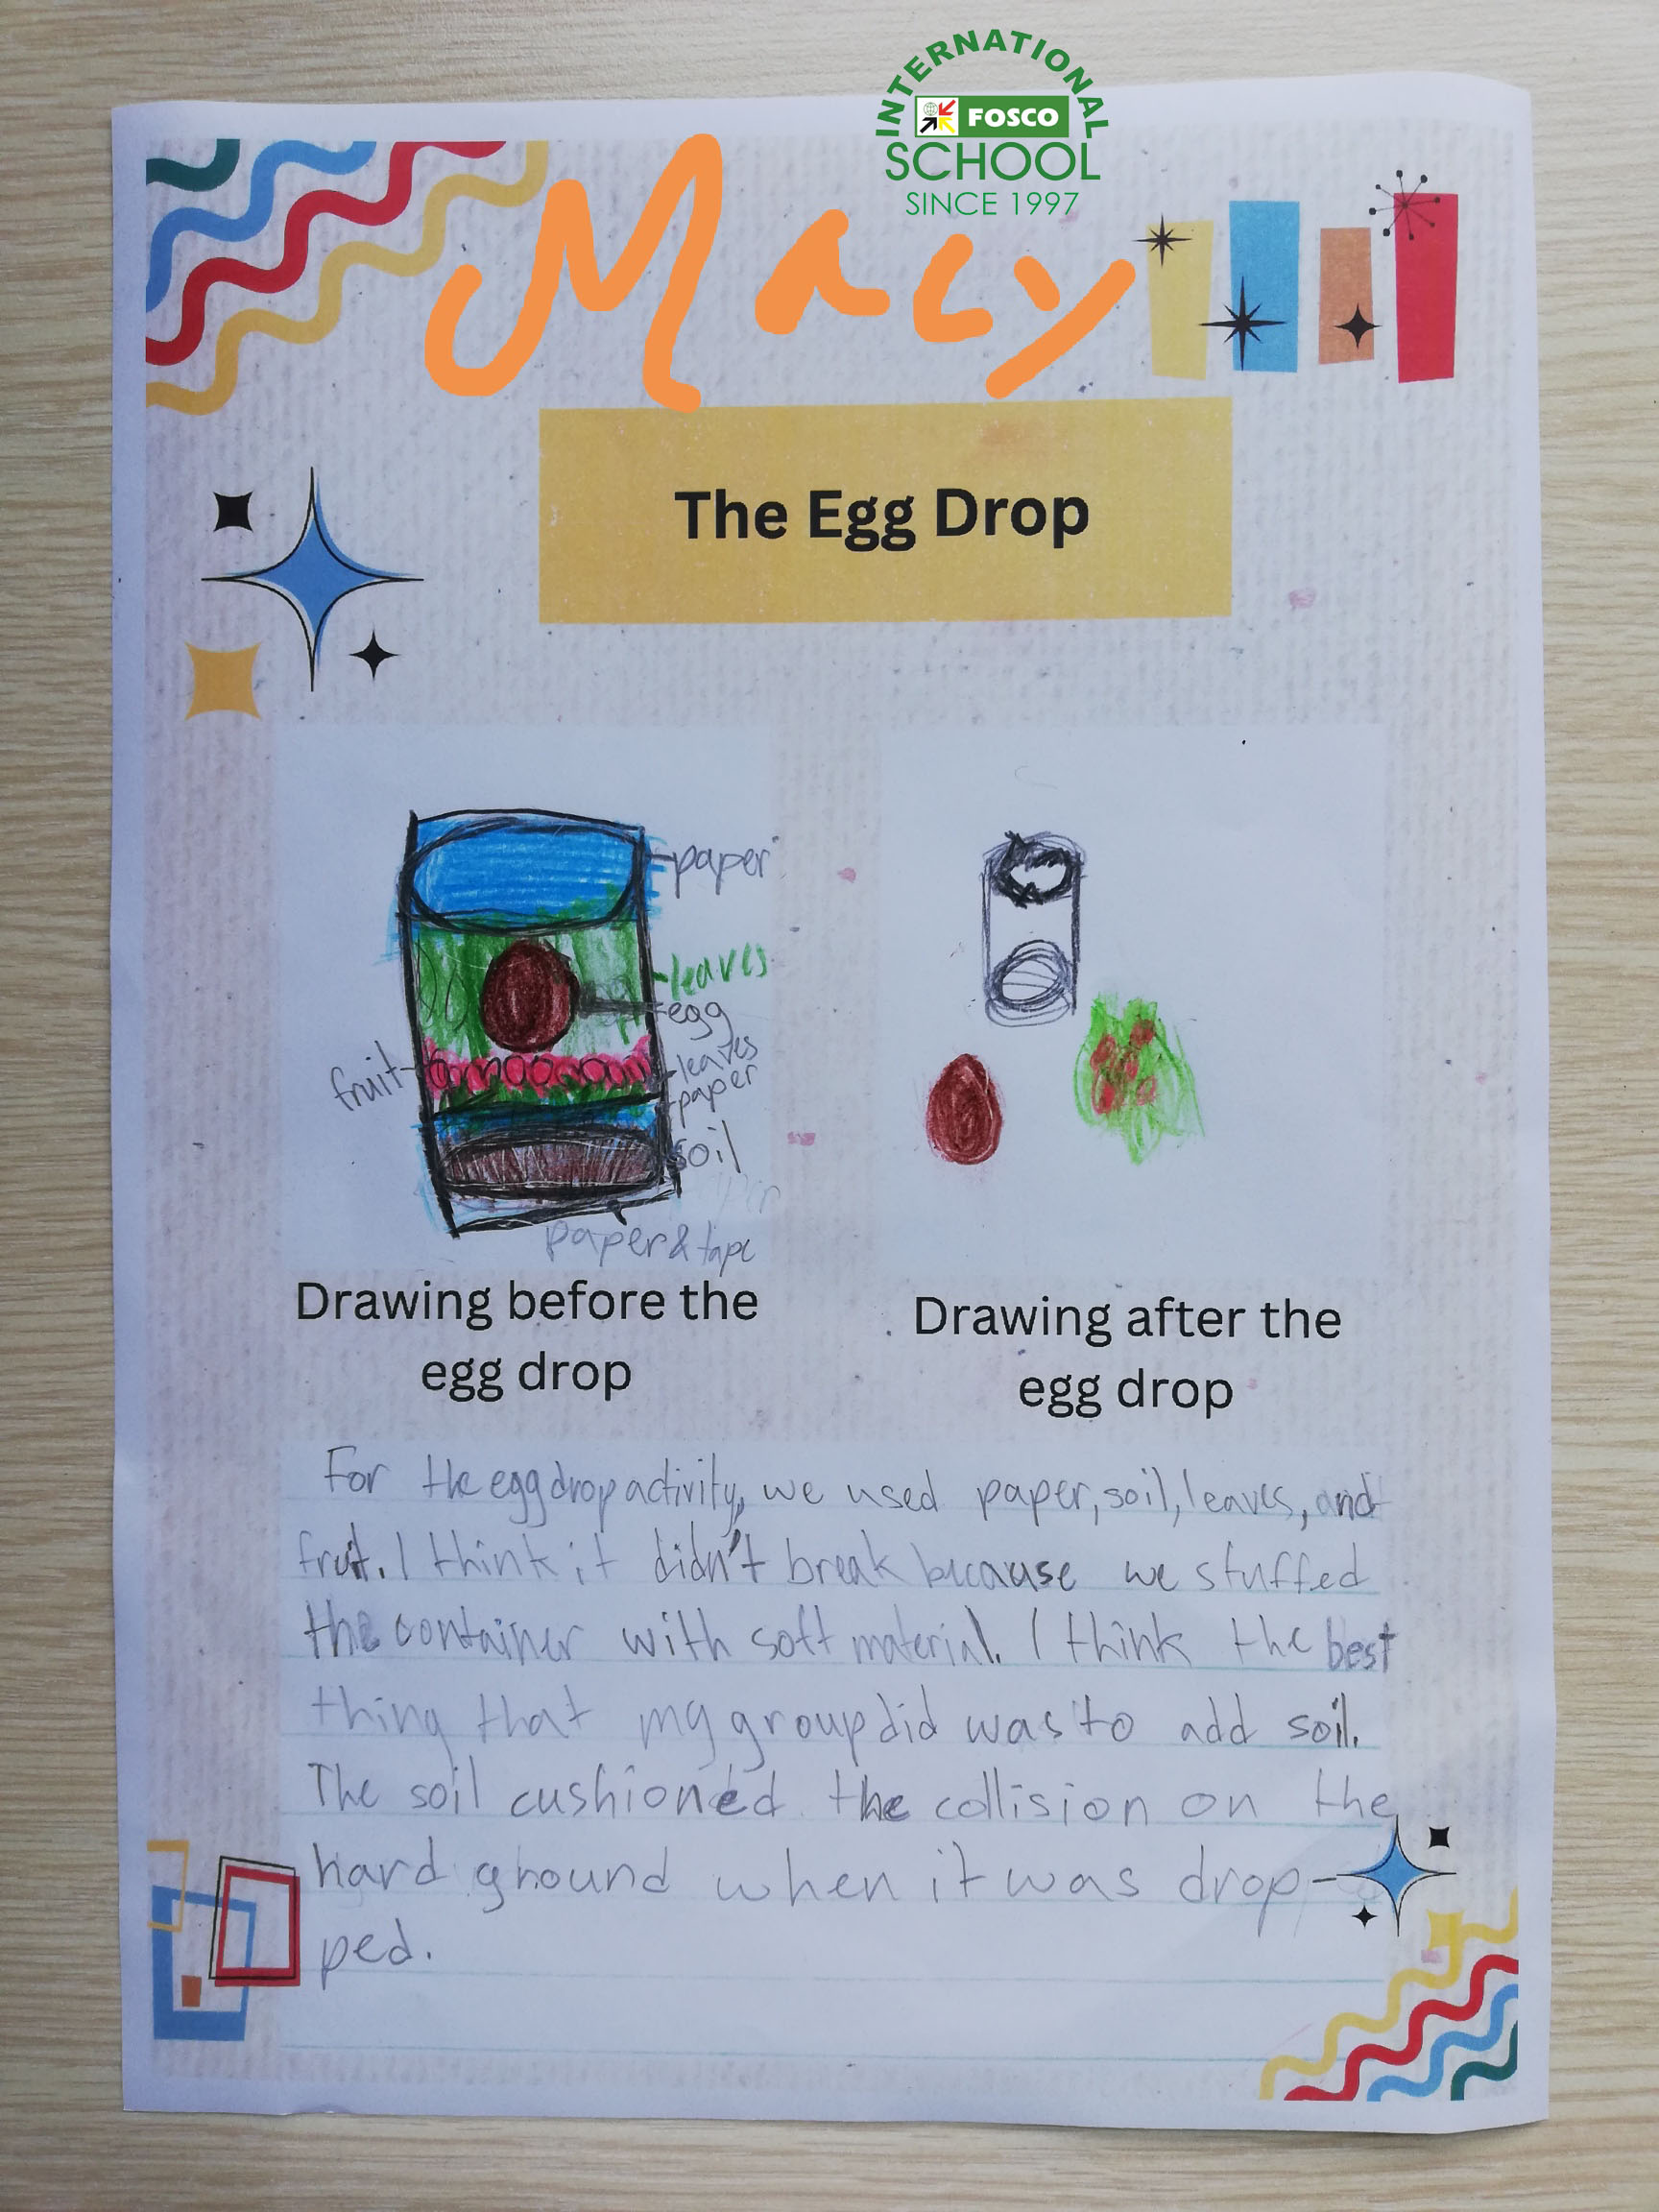 INTERNATIONAL
FOSCO
SCHOOL
SINCE 1997
Macy
The Egg Drop
paper
leaves
egg
fruit
leaves
paper
soil
paper & tape
Drawing before the
egg drop
Drawing after the
egg drop
For the egg drop activity, we used paper, soil, leaves, and
fruit. I think it didn't break because we stuffed
the container with soft material. I think the best
thing that my group did was to add soil.
The soil cushioned the collision on the
hard ground when it was drop-
ped.